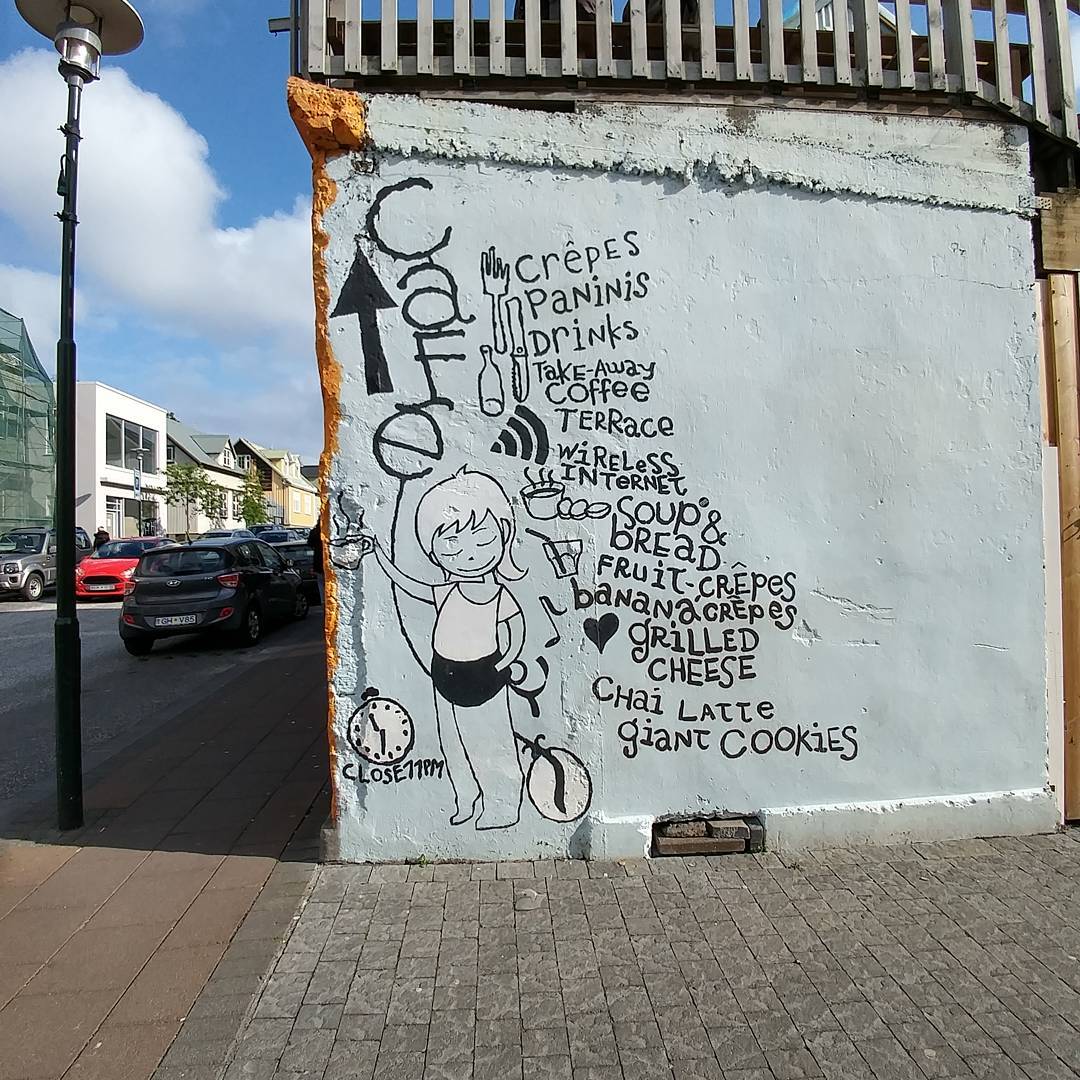 Café
CrêPES
PANiNiS
DriNKS
TAKE-AWAY
COFFEE
TERRACE
WiRELeSS
INTeRNET
SOUP &
bREAD
FRUiT-CRÊPES
bANANA CRÊPES
GRiLLED
CHEESE
CHai LATTe
giaNT COOKiES
CLOSE 11PM
GH V85